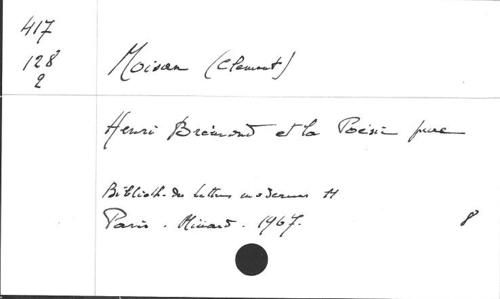 417
128
2
Moisan (Clément)
Henri Brémond et la Poésie pure
Biblioth. des lettres modernes 11
Paris. Minard. 1967.
8